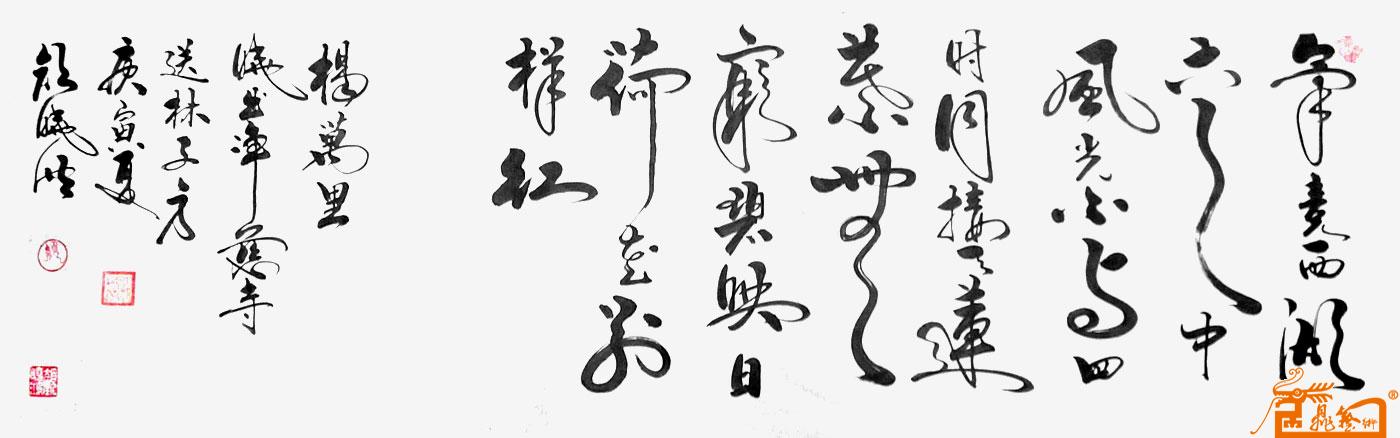 畢竟西湖
六月中
風光不与四
时同接天蓮
葉無
窮碧映日
荷花别
樣紅
楊萬里
曉出淨慈寺
送林子方
庚寅夏
曉